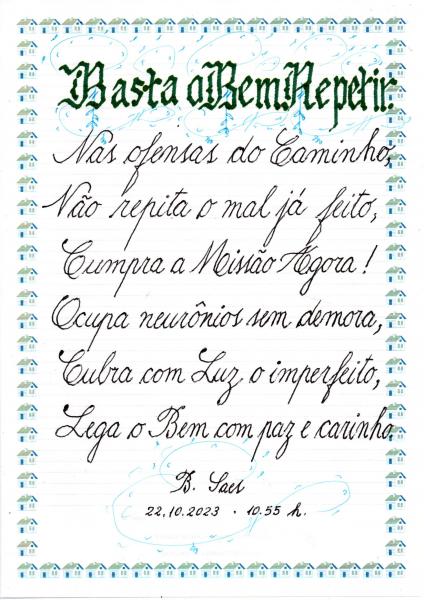 Basta o Bem Repetir.
Nas ofensas do Caminho,
Não repita o mal já feito,
Cumpra a Missão Agora!
Ocupa neurônios sem demora,
Cubra com Luz o imperfeito,
Lega o Bem com paz e carinho.
B. Saes
22.10.2023 . 10.55 h.